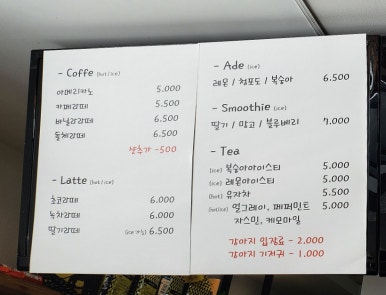 - Coffe (hot/ice)
아메리카노 5.000
카페라떼 5.500
바닐라라떼 6.500
돌체라떼 6.500
샷추가 -500
- Latte (hot/ice)
초코라떼 6.000
녹차라떼 6.000
딸기라떼 (ice only) 6.500
- Ade (ice)
레몬 / 청포도 / 복숭아 6.500
- Smoothie (ice)
딸기 / 망고 / 블루베리 7.000
- Tea
(ice) 복숭아아이스티 5.000
(ice) 레몬아이스티 5.000
(hot) 유자차 5.500
(hot/ice) 얼그레이, 페퍼민트 5.000
자스민, 케모마일
강아지 입장료 - 2.000
강아지 기저귀 - 1.000